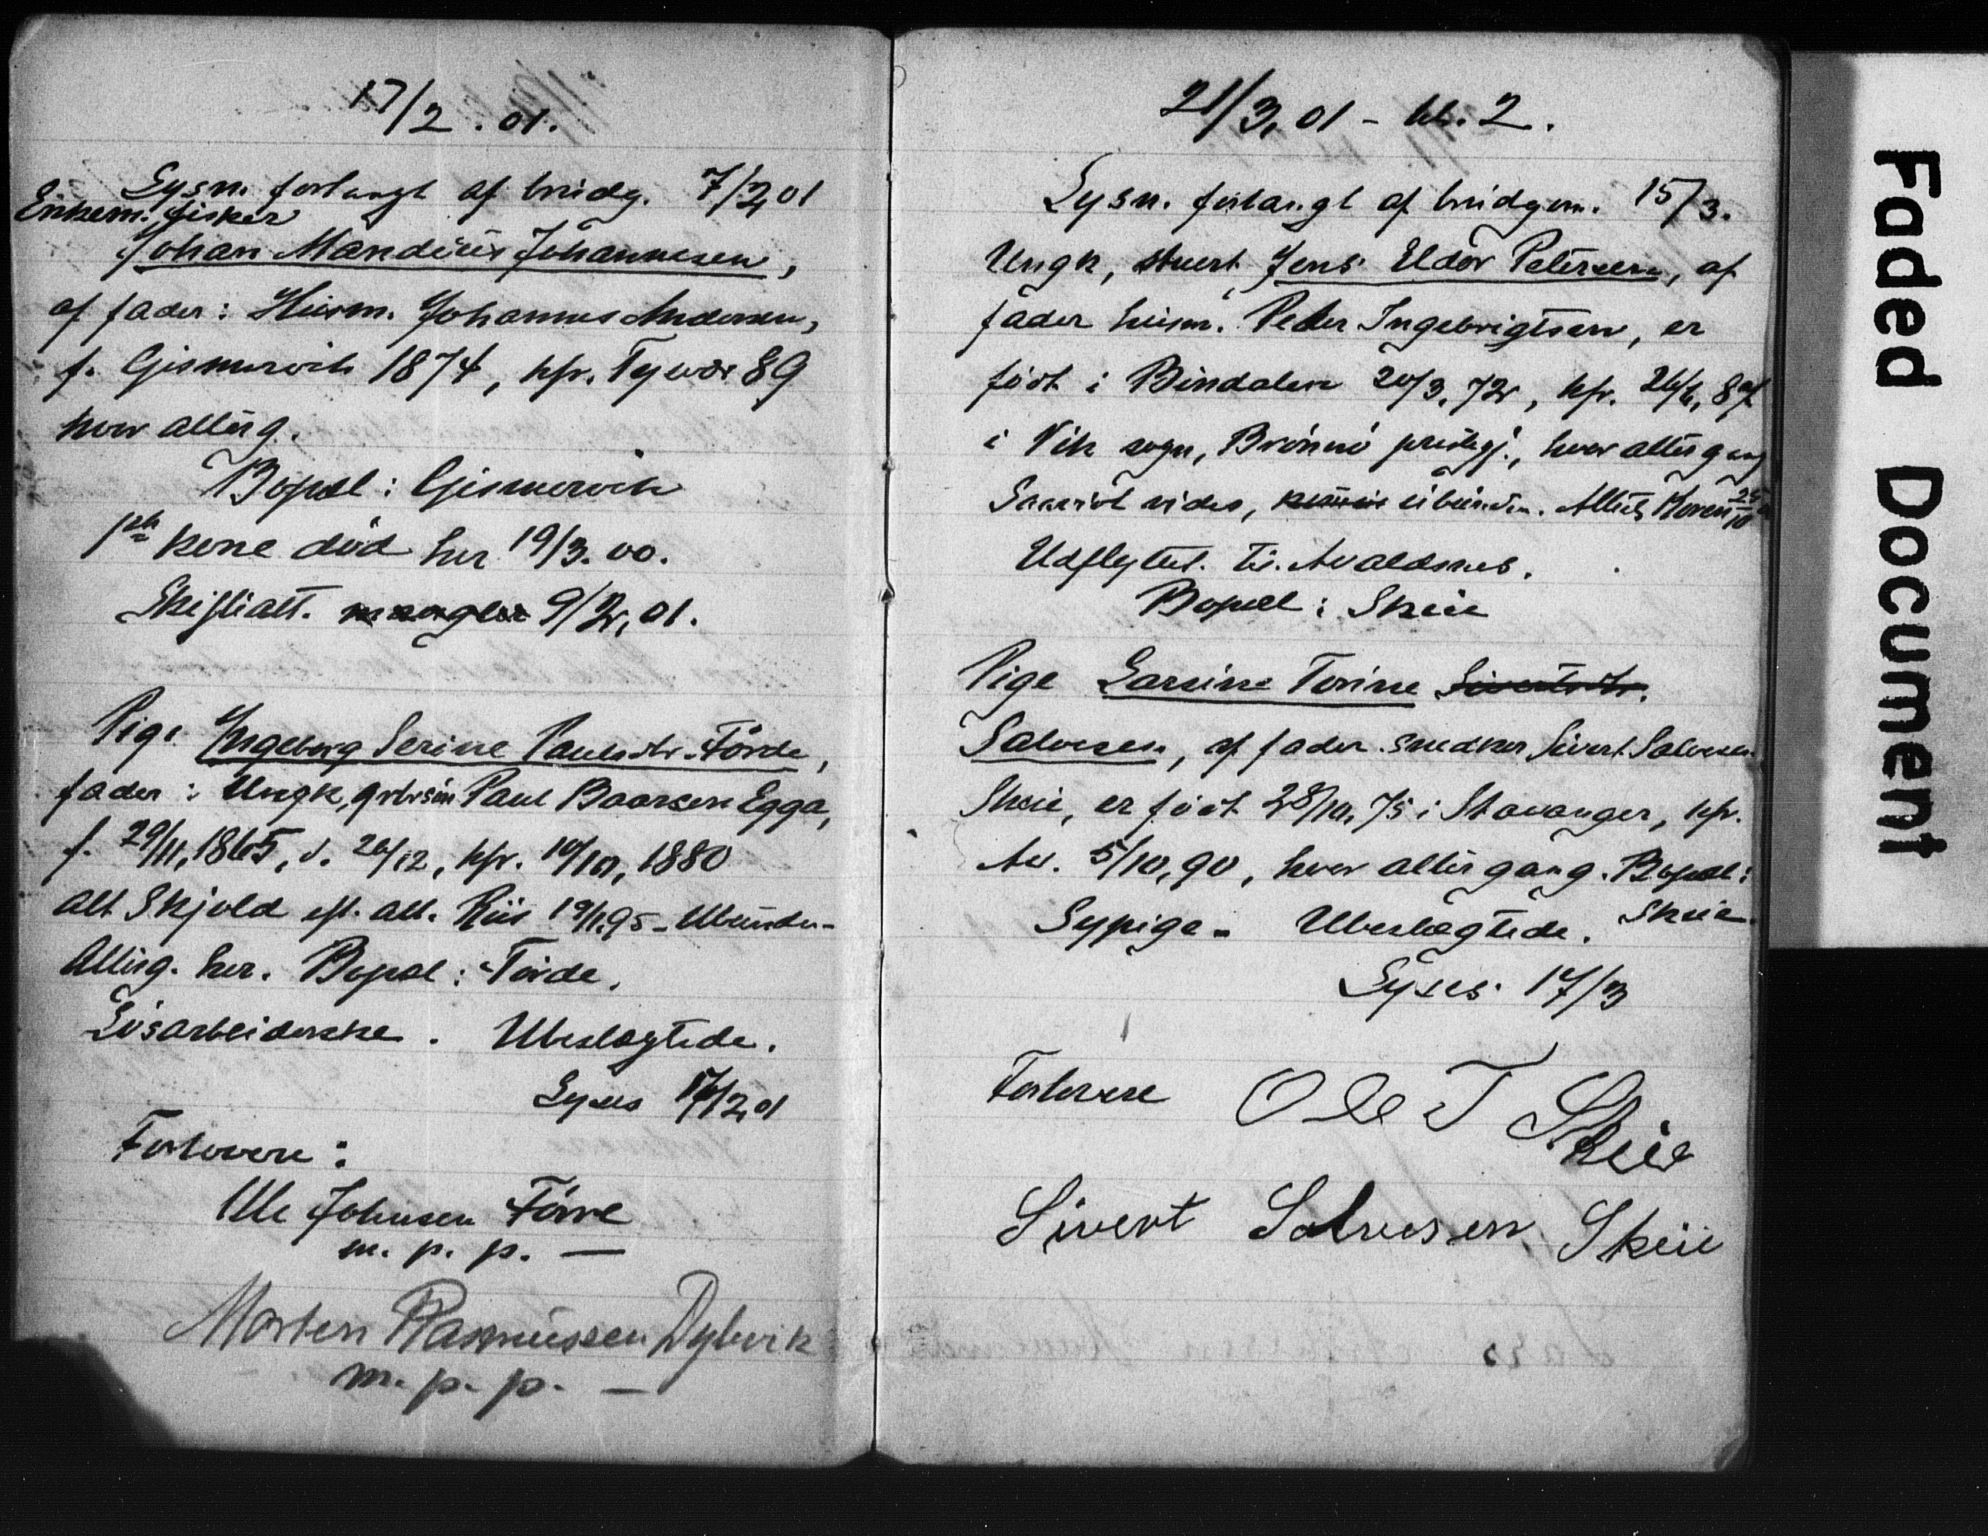 17/2. 01.
Lysn. forlangt af brudg. 7/2,01
Enkem. fisker
Johan Mandius Johannesen,
af fader: Husm. Johannes Andersen,
f. Gismervik 1874, kfr. Tysvær 89
hvor altersg.
Bopæl: Gismervik
1ste kone død her 19/3.00.
Skifteatt. mangler 9/2,01.
Pige Ingeborg Serine Paulsdtr. Förde,
fader: Ungk, grbrsön Paul Baarsen Egga,
f. 29/11,1865, d. 26/12, kfr. 10/10, 1880
alt Skjold efl. att. Riis 19/1.95 - Ubunden -
Altersg. her. Bopæl: Förde.
Lösarbeiderske. Ubeslægtede.
Lyses 17/2,01
Forlovere:
Ole Johnsen Förre
m. p. p. —
Morten Rasmussen Dybvik
m. p. p. —
21/3,01 - kl. 2.
Lysn. forlangt af brudgom. 15/3.
Ungk, stuert Jens Eldor Petersen, af
fader husm. Peder Ingebrigtsen, er
født i Bindalen 20/3,72, kfr. 26/6, 87
i Vik sogn, Brönnö prestegj., hvor altersgang
Saavidt vides, ubunden. Attest
Udflyttet til Avaldsnes.
Bopæl: Skeie
Pige Larsine Torine Sivertsdtr.
Salvesen, af fader snedker Sivert Salvesen
Skeie, er født 28/10,75 i Stavanger, kfr.
Av. 5/10,90, hvor altersgang. Bopæl:
Sypige - Ubeslægtede. Skeie.
Lyses 17/3
Forlovere Ole T Skeie
Sivert Salvesen Skeie
Faded Document